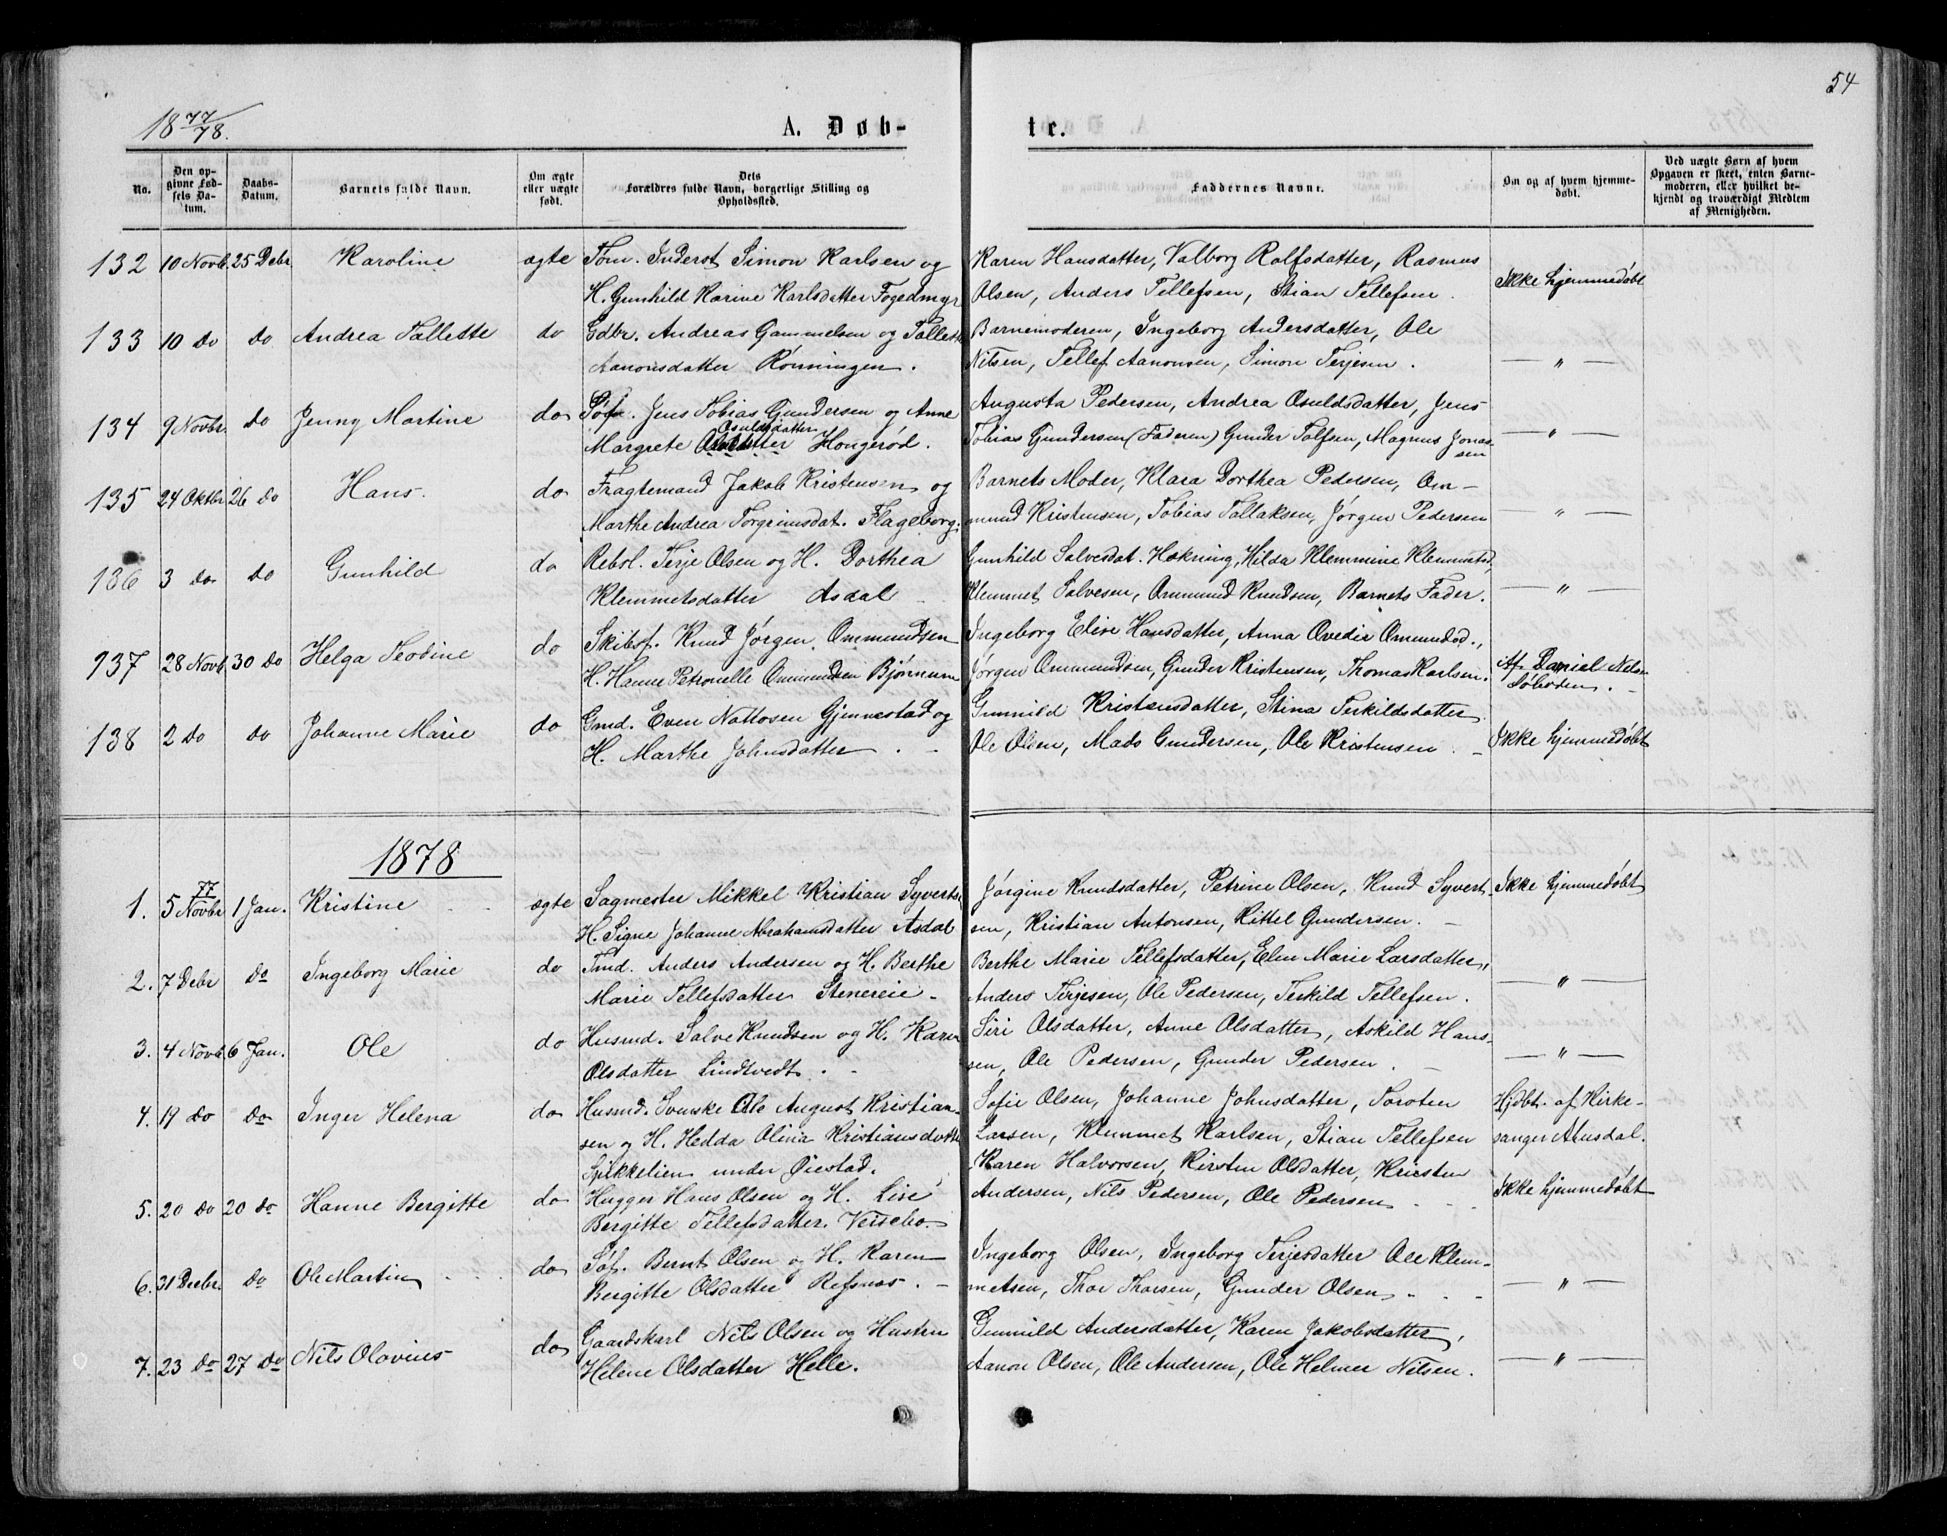 54
18 77/78.
A. Døb-
te.
No.
Den op-
givne Fød-
sels Da-
tum.
Daabs-
Datum.
Barnets fulde Navn.
Om ægte
eller uægte
født.
Dets
Forældres fulde Navn, borgerlige Stilling og
Opholdssted.
Faddernes Navne.
Om og af hvem hjemme-
døbt.
Ved uægte Børn af hvem
Opgaven er skeet, enten Barne-
moderen, eller hvilket be-
kjendt og troværdigt Medlem
af Menigheden.
132 10 Novb. 25 Debr Karoline ægte Tøm. Inderst Simon Karlsen og Karen Hansdatter, Valborg Rolfsdatter, Rasmus Ikke hjemmedøbt
H. Gunhild Karine Karlsdatter Fogedmyr Olsen, Anders Tellefsen, Stian Tellefsen.
133 10 do do Andrea Tallette do Gdbr. Andreas Gammelsen og Tallette Barnemoderen, Ingeborg Andersdatter, Ole
Aanonsdatter Rønningen. Nilsen, Tellef Aanonsen, Simon Terjesen. — " —
134 9 Novbr. do Jenny Martine do Søf. Jens Tobias Gundersen og Anne Augusta Pedersen, Andrea Osuldsdatter, Jens
Osuldsdatter
Margrete Hougerød. Tobias Gundersen (Faderen) Gunder Tolfsen, Magnus Jonas- — " —
sen
135 24 Oktbr 26 do Hans. do Fragtemand Jakob Kristensen og Barnets Moder, Klara Dorthea Pedersen, Om-
Marthe Andrea Torgrimsdat. Flageborg. mund Kristensen, Tobias Tallaksen, Jørgen Pedersen — " —
136 3 do do Gunhild do Rebsl. Terje Olsen og H. Dorthea Gunhild Salvesdat. Hækning, Hilda Klemmine Klemmetsd.,
Klemmetsdatter Asdal Klemmet Salvesen, Ommund Knudsen, Barnets Fader. — " —
137 28 Novb. 30 do Helga Teodine do Skibsf. Knud Jørgen Ommundsen Ingeborg Elise Hansdatter, Anna Ovedie Omundsd.,
H. Hanne Petronelle Ommundsen Bjønnum Jørgen Ommundsen, Gunder Kristensen, Thomas Karlsen. Af Daniel Nilsen
Løbodden.
138 2 do do Johanne Marie do Gmd. Even Nattosen Gjennestad og Gunnild Kristensdatter, Stina Terkildsdatter
H. Marthe Johnsdatter. Ole Olsen, Mads Gundersen, Ole Kristensen. Ikke hjemmedøbt
1878
77
1. 5 Novbr 1 Jan. Kristine ægte Sagmester Mikkel Kristian Syverts. Jørgine Knudsdatter, Petrine Olsen, Knud Syvert- Ikke hjemmedøbt
H. Signe Johanne Abrahamsdatter Asdal sen, Kristian Antonsen, Kittel Gundersen.
2. 7 Debr do Ingeborg Marie do Tmd. Anders Andersen og H. Berthe Berthe Marie Tellefsdatter, Elen Marie Larsdatter,
Marie Tellefsdatter Stenereie. Anders Terjesen, Ole Pedersen, Terkild Tellefsen. — " —
3. 4 Novb. 6 Jan. Ole do Husmd. Salve Knudsen og H. Karen Siri Olsdatter, Anne Olsdatter, Askild Hans-
Olsdatter Lindtvedt. sen, Ole Pedersen, Gunder Pedersen. — " —
4. 19 do do Inger Helena do Husmd. Svenske Ole August Kristian- Sofie Olsen, Johanne Johnsdatter, Toroten Hjdbt. af Kirke-
sen og H. Hedda Olina Kristiansdotter Larsen, Klemmet Karlsen, Stian Tellefsen sanger Aausdal.
Spikkelien under Øiestad.
5. 20 do 20 do Hanne Bergitte do Hugger Hans Olsen og H. Lise Karen Halvorsen, Kirsten Olsdatter, Kristen Ikke hjemmedøbt
Bergitte Tellefsdatter. Vessebo. Andersen, Nils Pedersen, Ole Pedersen
6. 31 Decbr. do Ole Martin do Søf. Bernt Olsen og H. Karen Ingeborg Olsen, Ingeborg Terjesdatter Ole Klem-
Bergitte Olsdatter Refsnes. metsen, Thor Thorsen, Gunder Olsen — " —
7. 23 do 27 do Nils Olavius do Gaardskarl Nils Olsen og Hustru Gunnild Andersdatter, Karen Jakobsdatter,
Helene Olsdatter Helle. Aanon Olsen, Ole Andersen, Ole Helmer Nilsen. — " —